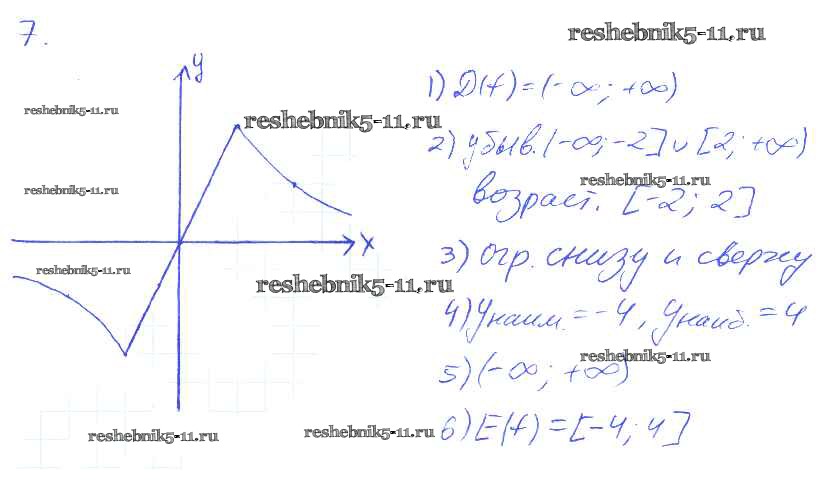 7.
reshebnik5-11.ru
y
reshebnik5-11.ru
1) D(f)=(-∞; +∞)
reshebnik5-11.ru
2) убыв. (-∞; -2] ∪ [2; +∞)
reshebnik5-11.ru
reshebnik5-11.ru
возраст. [-2; 2]
x
3) огр. снизу и сверху
reshebnik5-11.ru
reshebnik5-11.ru
4) yнаим. = -4, yнаиб. = 4
reshebnik5-11.ru
5) (-∞; +∞)
reshebnik5-11.ru
reshebnik5-11.ru
6) E(f)=[-4; 4]